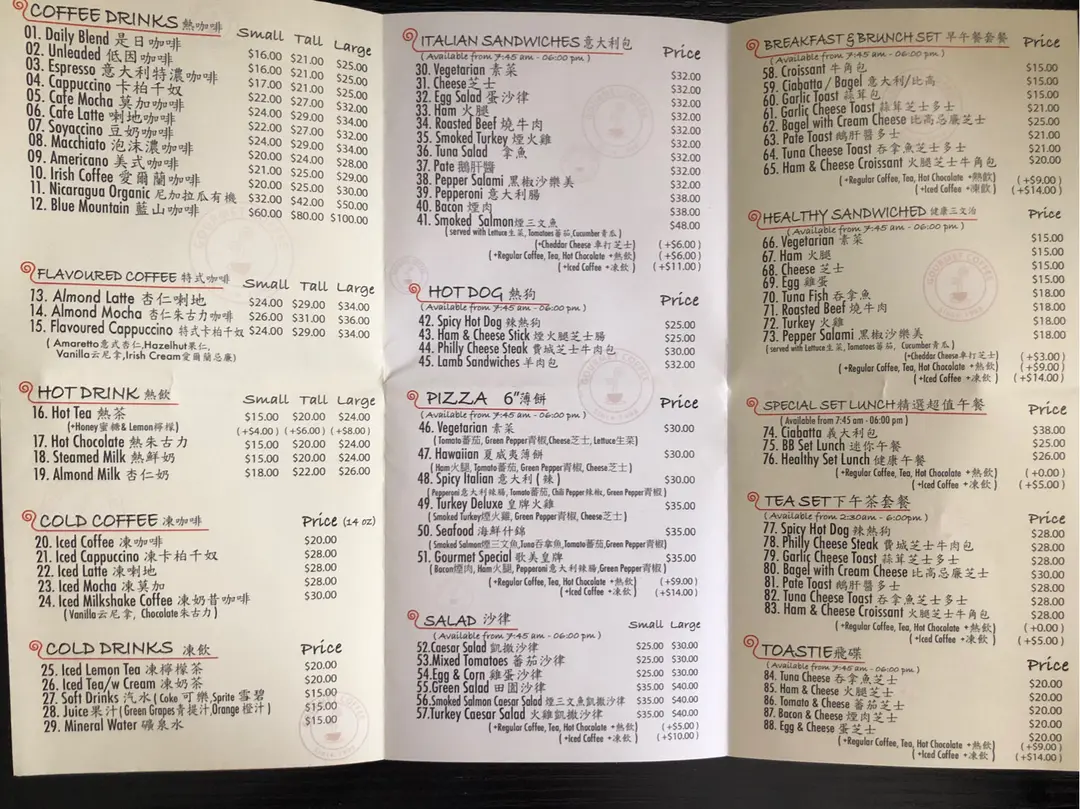 COFFEE DRINKS 熱咖啡 Small Tall Large
01. Daily Blend 是日咖啡 $16.00 $21.00 $25.00
02. Unleaded 低因咖啡 $16.00 $21.00 $25.00
03. Espresso 意大利特濃咖啡 $17.00 $21.00 $25.00
04. Cappuccino 卡柏千奴 $22.00 $27.00 $32.00
05. Cafe Mocha 莫加咖啡 $24.00 $29.00 $34.00
06. Cafe Latte 喇地咖啡 $22.00 $27.00 $32.00
07. Soyaccino 豆奶咖啡 $24.00 $29.00 $34.00
08. Macchiato 泡沫濃咖啡 $20.00 $24.00 $28.00
09. Americano 美式咖啡 $21.00 $25.00 $29.00
10. Irish Coffee 愛爾蘭咖啡 $20.00 $25.00 $30.00
11. Nicaragua Organic 尼加拉瓜有機 $32.00 $42.00 $50.00
12. Blue Mountain 藍山咖啡 $60.00 $80.00 $100.00
FLAVOURED COFFEE 特式咖啡 Small Tall Large
13. Almond Latte 杏仁喇地 $24.00 $29.00 $34.00
14. Almond Mocha 杏仁朱古力咖啡 $26.00 $31.00 $36.00
15. Flavoured Cappuccino 特式卡柏千奴 $24.00 $29.00 $34.00
( Amaretto意式杏仁,Hazelhut果仁,
Vanilla云尼拿,Irish Cream愛爾蘭忌廉)
HOT DRINK 熱飲 Small Tall Large
16. Hot Tea 熱茶 $15.00 $20.00 $24.00
(+Honey蜜糖& Lemon檸檬) (+$4.00) (+$6.00) (+$8.00)
17. Hot Chocolate 熱朱古力 $15.00 $20.00 $24.00
18. Steamed Milk 熱鮮奶 $15.00 $20.00 $24.00
19. Almond Milk 杏仁奶 $18.00 $22.00 $26.00
COLD COFFEE 凍咖啡 Price (14 oz)
20. Iced Coffee 凍咖啡 $20.00
21. Iced Cappuccino 凍卡柏千奴 $28.00
22. Iced Latte 凍喇地 $28.00
23. Iced Mocha 凍莫加 $28.00
24. Iced Milkshake Coffee 凍奶昔咖啡 $30.00
(Vanilla云尼拿, Chocolate朱古力)
COLD DRINKS 凍飲 Price
25. Iced Lemon Tea 凍檸檬茶 $20.00
26. Iced Tea/w Cream 凍奶茶 $20.00
27. Soft Drinks 汽水(Coke 可樂,Sprite 雪碧 $15.00
28. Juice果汁(Green Grapes青提汁,Orange 橙汁) $15.00
29. Mineral Water 礦泉水 $15.00
ITALIAN SANDWICHES 意大利包 Price
(Available from 7:45 am - 06:00 pm)
30. Vegetarian 素菜 $32.00
31. Cheese芝士 $32.00
32. Egg Salad 蛋沙律 $32.00
33. Ham 火腿 $32.00
34. Roasted Beef 燒牛肉 $32.00
35. Smoked Turkey 煙火雞 $32.00
36. Tuna Salad 拿魚 $32.00
37. Pate 鵝肝醬 $32.00
38. Pepper Salami 黑椒沙樂美 $32.00
39. Pepperoni 意大利腸 $38.00
40. Bacon 煙肉 $38.00
41. Smoked Salmon煙三文魚 $48.00
( served with Lettuce生菜,Tomatoes蕃茄,Cucumber青瓜 )
(+Cheddar Cheese 車打芝士) (+$6.00 )
(+Regular Coffee, Tea, Hot Chocolate +熱飲) (+$6.00 )
(+Iced Coffee +凍飲 ) (+$11.00)
HOT DOG 熱狗 Price
(Available from 7:45 am - 06:00 pm )
42. Spicy Hot Dog 辣熱狗 $25.00
43. Ham & Cheese Stick 煙火腿芝士腸 $25.00
44. Philly Cheese Steak 費城芝士牛肉包 $30.00
45. Lamb Sandwiches 羊肉包 $32.00
PIZZA 6”薄餅 Price
(Available from 7:45 am - 06:00 pm)
46. Vegetarian 素菜 $30.00
(Tomato蕃茄, Green Pepper青椒,Cheese芝士, Lettuce生菜)
47. Hawaiian 夏威夷薄餅 $30.00
( Ham火腿, Tomato蕃茄, Green Pepper青椒, Cheese芝士)
48. Spicy Italian 意大利 ( 辣 ) $30.00
( Pepperoni 意大利辣腸, Tomato蕃茄, Chili Pepper 辣椒, Green Pepper青椒)
49. Turkey Deluxe 皇牌火雞 $35.00
( Smoked Turkey煙火雞, Green Pepper青椒, Cheese芝士)
50. Seafood 海鮮什錦 $35.00
(Smoked Salmon煙三文魚,Tuna吞拿魚,Tomato蕃茄,Green Pepper青椒)
51. Gourmet Special 歌美皇牌 $35.00
(Bacon煙肉, Ham火腿, Pepperoni意大利辣腸,Green Pepper青椒)
(+Regular Coffee, Tea, Hot Chocolate +熱飲) (+$9.00 )
(+Iced Coffee +凍飲 ) (+$14.00 )
SALAD 沙律 Small Large
(Available from 7:45 am - 06:00 pm )
52.Caesar Salad 凱撒沙律 $25.00 $30.00
53.Mixed Tomatoes 蕃茄沙律 $25.00 $30.00
54.Egg & Corn 雞蛋沙律 $25.00 $30.00
55.Green Salad 田園沙律 $35.00 $40.00
56.Smoked Salmon Caesar Salad 煙三文魚凱撒沙律 $35.00 $40.00
57.Turkey Caesar Salad 火雞凱撒沙律 $35.00 $40.00
(+Regular Coffee, Tea, Hot Chocolate +熱飲) (+$5.00 )
(+Iced Coffee +凍飲 ) (+$10.00 )
BREAKFAST & BRUNCH SET 早午餐套餐 Price
(Available from 7:45 am - 06:00 pm)
58. Croissant 牛角包 $15.00
59. Ciabatta / Bagel 意大利/比高 $15.00
60. Garlic Toast 蒜茸包 $15.00
61. Garlic Cheese Toast 蒜茸芝士多士 $21.00
62. Bagel with Cream Cheese 比高忌廉芝士 $25.00
63. Pate Toast 鵝肝醬多士 $21.00
64. Tuna Cheese Toast 吞拿魚芝士多士 $21.00
65. Ham & Cheese Croissant 火腿芝士牛角包 $20.00
(+Regular Coffee, Tea, Hot Chocolate +熱飲) (+$9.00 )
(+Iced Coffee +凍飲 ) (+$14.00 )
HEALTHY SANDWICHED 健康三文治 Price
(Available from 7:45 am - 06:00 pm)
66. Vegetarian 素菜 $15.00
67. Ham 火腿 $15.00
68. Cheese 芝士 $15.00
69. Egg 雞蛋 $15.00
70. Tuna Fish 吞拿魚 $18.00
71. Roasted Beef 燒牛肉 $18.00
72. Turkey 火雞 $18.00
73. Pepper Salami 黑椒沙樂美 $18.00
(served with Lettuce生菜, Tomatoes蕃茄, Cucumber青瓜 )
(+Cheddar Cheese車打芝士) (+$3.00 )
(+Regular Coffee, Tea, Hot Chocolate +熱飲) (+$9.00 )
(+Iced Coffee +凍飲 ) (+$14.00 )
SPECIAL SET LUNCH精選超值午餐 Price
(Available from 7:45 am - 06:00 pm)
74. Ciabatta 義大利包 $38.00
75. BB Set Lunch 迷你午餐 $25.00
76. Healthy Set Lunch 健康午餐 $26.00
(+Regular Coffee, Tea, Hot Chocolate +熱飲) (+0.00 )
(+Iced Coffee +凍飲 ) (+$5.00 )
TEA SET下午茶套餐 Price
(Available from 2:30am - 6:00pm )
77. Spicy Hot Dog 辣熱狗 $28.00
78. Philly Cheese Steak 費城芝士牛肉包 $28.00
79. Garlic Cheese Toast 蒜茸芝士多士 $28.00
80. Bagel with Cream Cheese 比高忌廉芝士 $30.00
81. Pate Toast 鵝肝醬多士 $28.00
82. Tuna Cheese Toast 吞拿魚芝士多士 $28.00
83. Ham & Cheese Croissant 火腿芝士牛角包 $28.00
(+Regular Coffee, Tea, Hot Chocolate +熱飲) (+0.00 )
(+Iced Coffee +凍飲 ) (+$5.00 )
TOASTIE飛碟 Price
(Available from 7:45 am - 06:00 pm)
84. Tuna Cheese 吞拿魚芝士 $20.00
85. Ham & Cheese 火腿芝士 $20.00
86. Tomato & Cheese 蕃茄芝士 $20.00
87. Bacon & Cheese 煙肉芝士 $20.00
88. Egg & Cheese 蛋芝士 $20.00
(+Regular Coffee, Tea, Hot Chocolate +熱飲) (+$9.00 )
(+Iced Coffee +凍飲 ) (+$14.00 )
GOURMET COFFEE
SINCE 1998